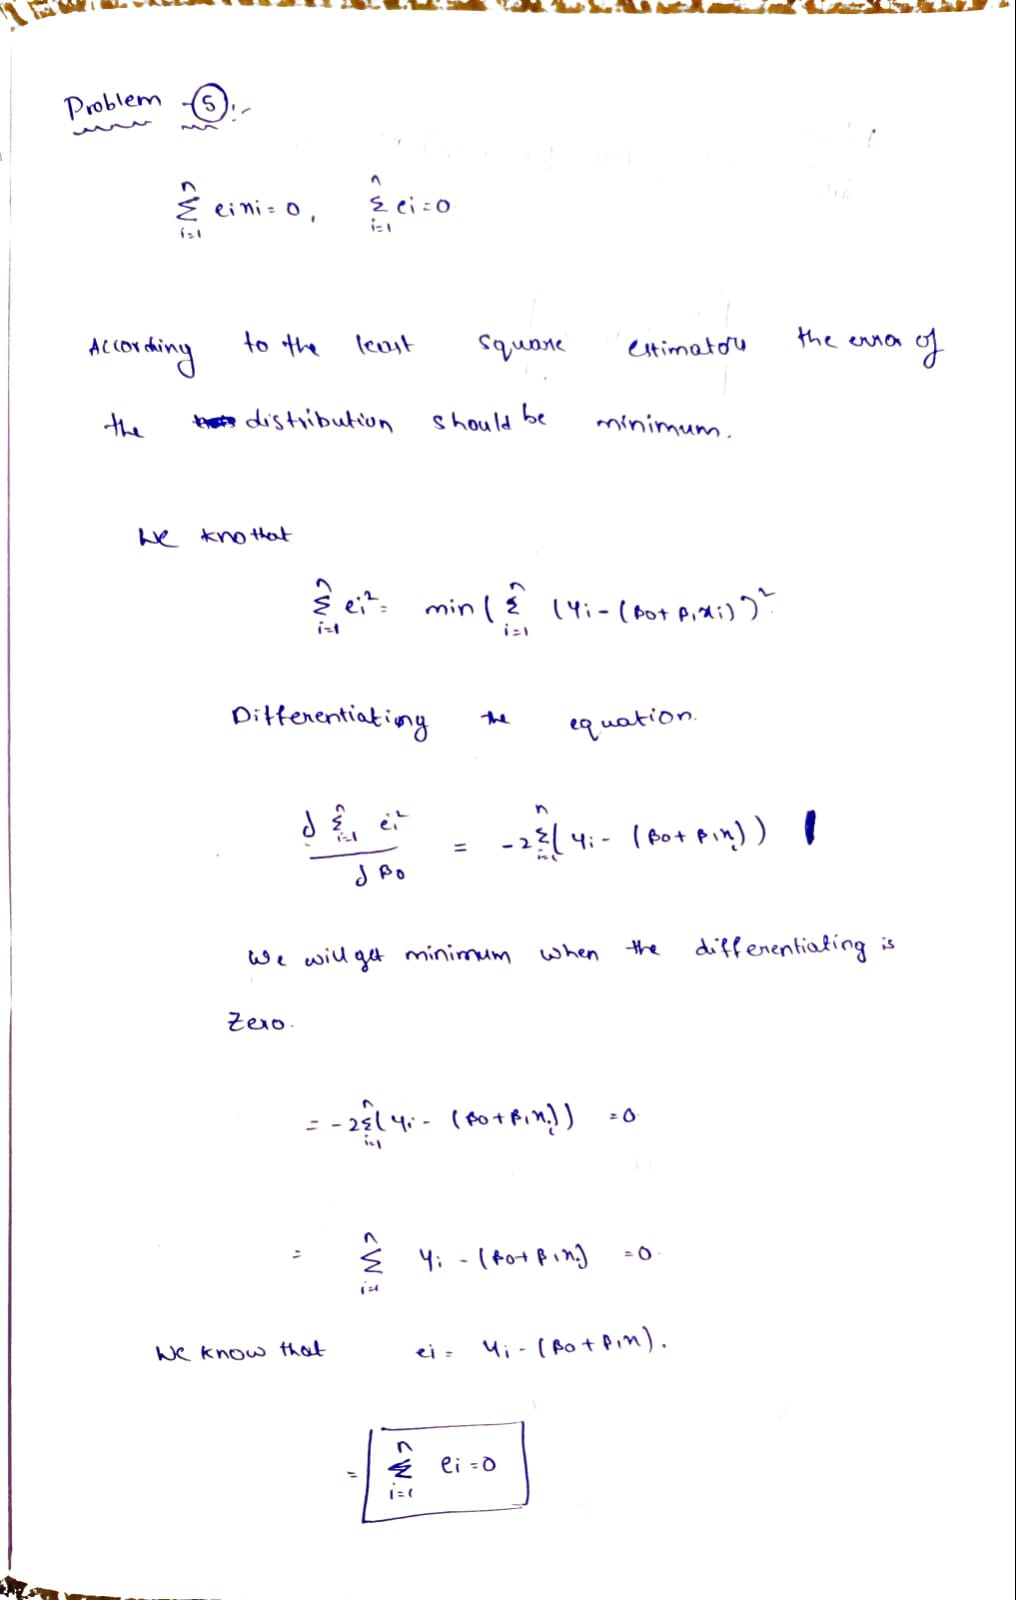 Problem -⑤:-
n∑i=1 eixi = 0, n∑i=1 ei = 0
According to the least square estimators the error of
the distribution should be minimum.
We kno that
n∑i=1 ei² = min ( n∑i=1 (yi - (β0 + β1xi))²
Differentiationg the equation.
d n∑i=1 ei² / d β0 = -2 n∑i=1 ( yi - (β0 + β1xi))
We will get minimum when the differentiating is
Zero.
= -2 n∑i=1 ( yi - (β0 + β1xi)) = 0
= n∑i=1 yi - (β0 + β1xi) = 0.
We know that ei = yi - (β0 + β1x).
= n∑i=1 ei = 0